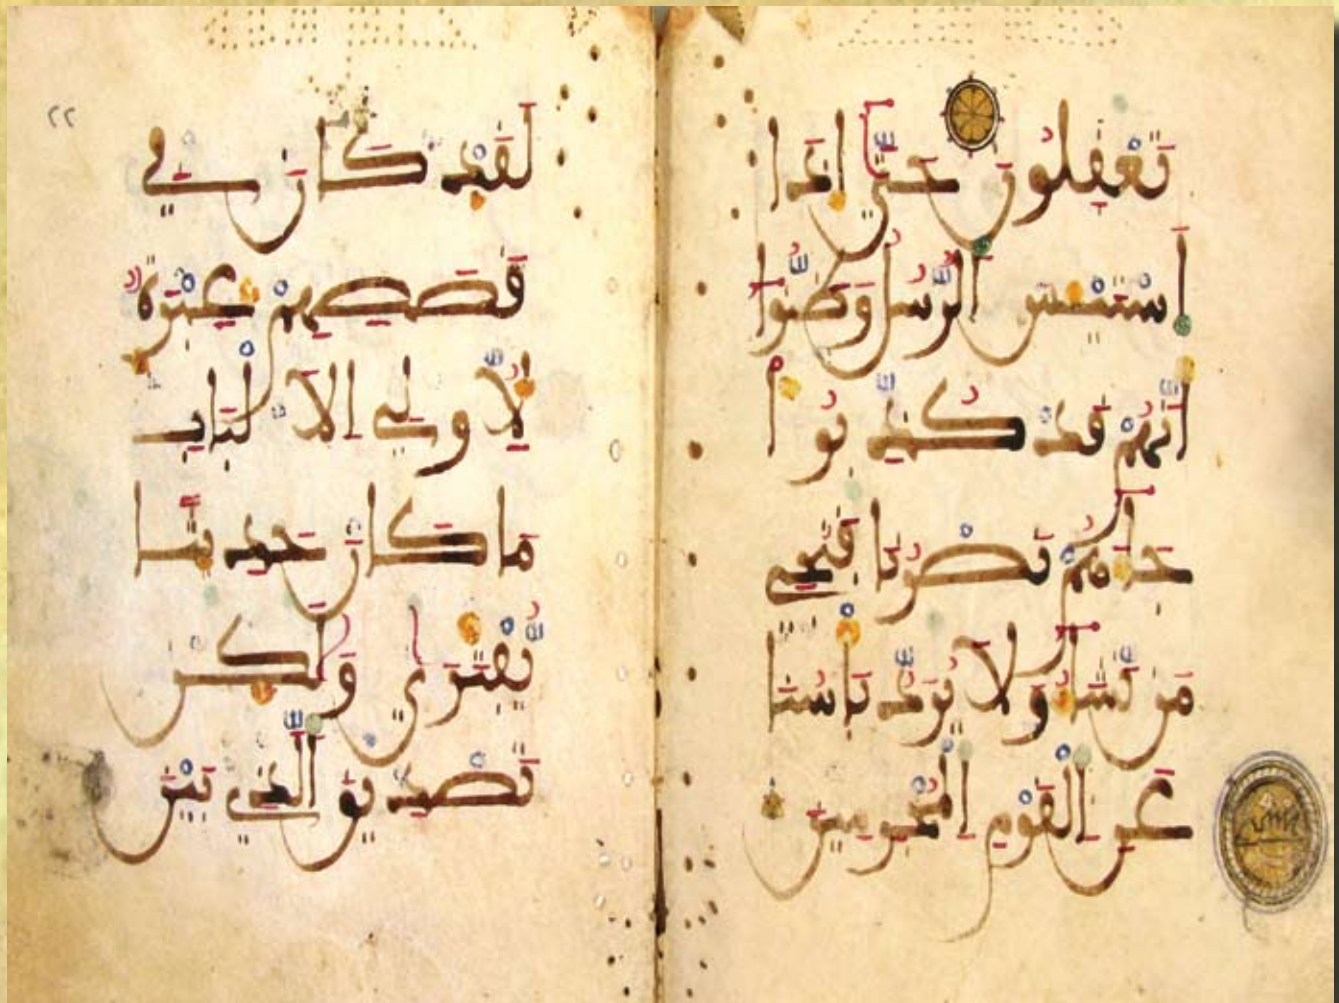 تعقلون حتى اذا
استيئس الرسل وظنوا
انهم قد كذبوا
جاءهم نصرنا فنجي
من نشاء ولا يرد باسنا
عن القوم المجرمين
٢٢
لقد كان في
قصصهم عبرة
لاولي الالباب
ما كان حديثا
يفترى ولكن
تصديق الذي بين